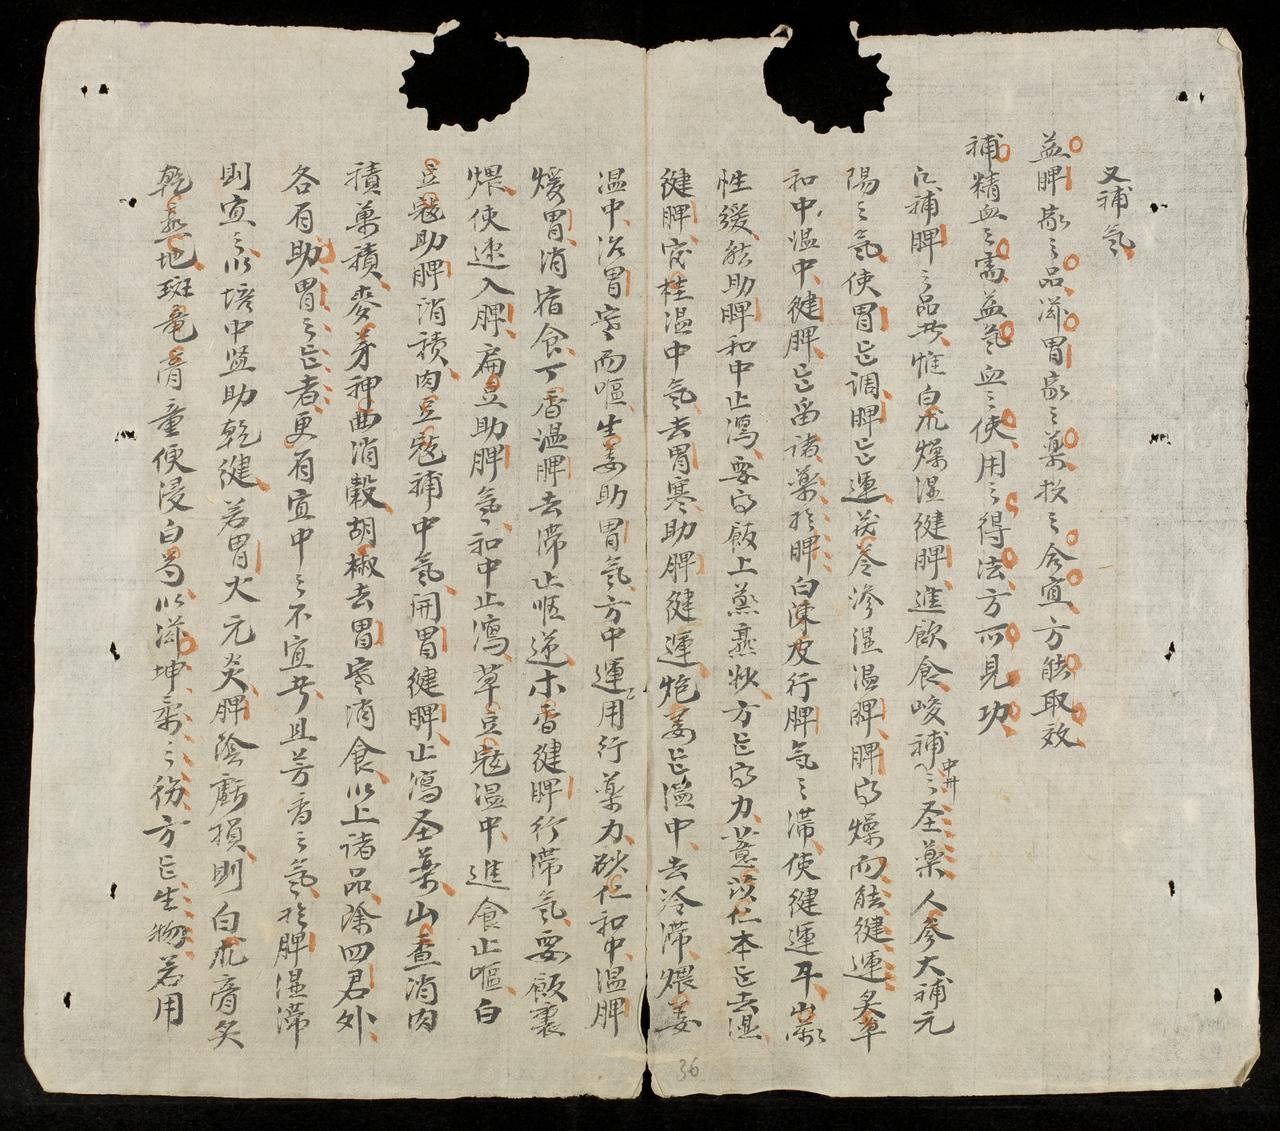 又補氣
益脾家之品滋胃家之藥投之合宜方能取效
補精血之需益氣血之使用之得法方可見功
補脾之品共惟白朮燥湿健脾進飲食峻補中州之圣藥人參大補元
陽之氣使胃㠯调脾㠯運茯苓滲湿温脾脾得燥而能健運炙草
和中温中健脾㠯留诸藥於脾白陳皮行脾氣之滞使健運耳山藥
性緩能助脾和中止瀉要得飯上蒸熟炒方㠯得力薏苡仁本㠯去湿
健脾安桂温中氣去胃寒助脾健運炮姜㠯温中去冷滞煨姜
温中治胃寒而嘔生姜助胃氣方中運用行藥力砂仁和中温脾
煖胃消宿食丁香温脾去滞止呃逆木香健脾行滞氣要飯裹
煨使速入脾扁豆助脾氣和中止瀉草豆蔻温中進食止嘔白
豆蔻助脾消積肉豆蔻補中氣開胃健脾止瀉圣藥山查消肉
積菓積麥芽神曲消穀胡椒去胃寒消食以上诸品除四君外
各有助胃之㠯者更有宜中之不宜者且芳香之氣於脾湿滞
則宜之以培中益助乾健若胃火元炎脾陰虧損則白朮膏炙
乾熟地斑龟膏童便浸白芍以滋坤柔之彷方㠯生物若用
36